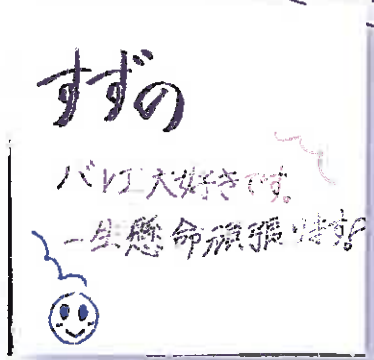 すずの
バレエ大好きです。
一生懸命頑張ります!